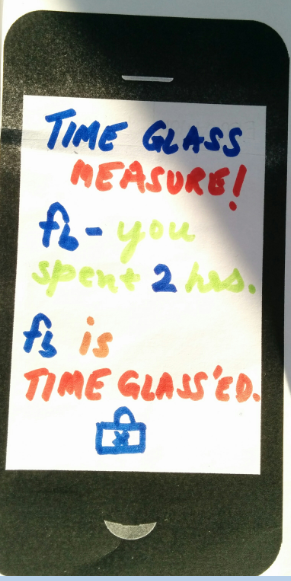 TIME GLASS
MEASURE!
fb- you
spent 2 hrs.
fb is
TIME GLASS'ED.